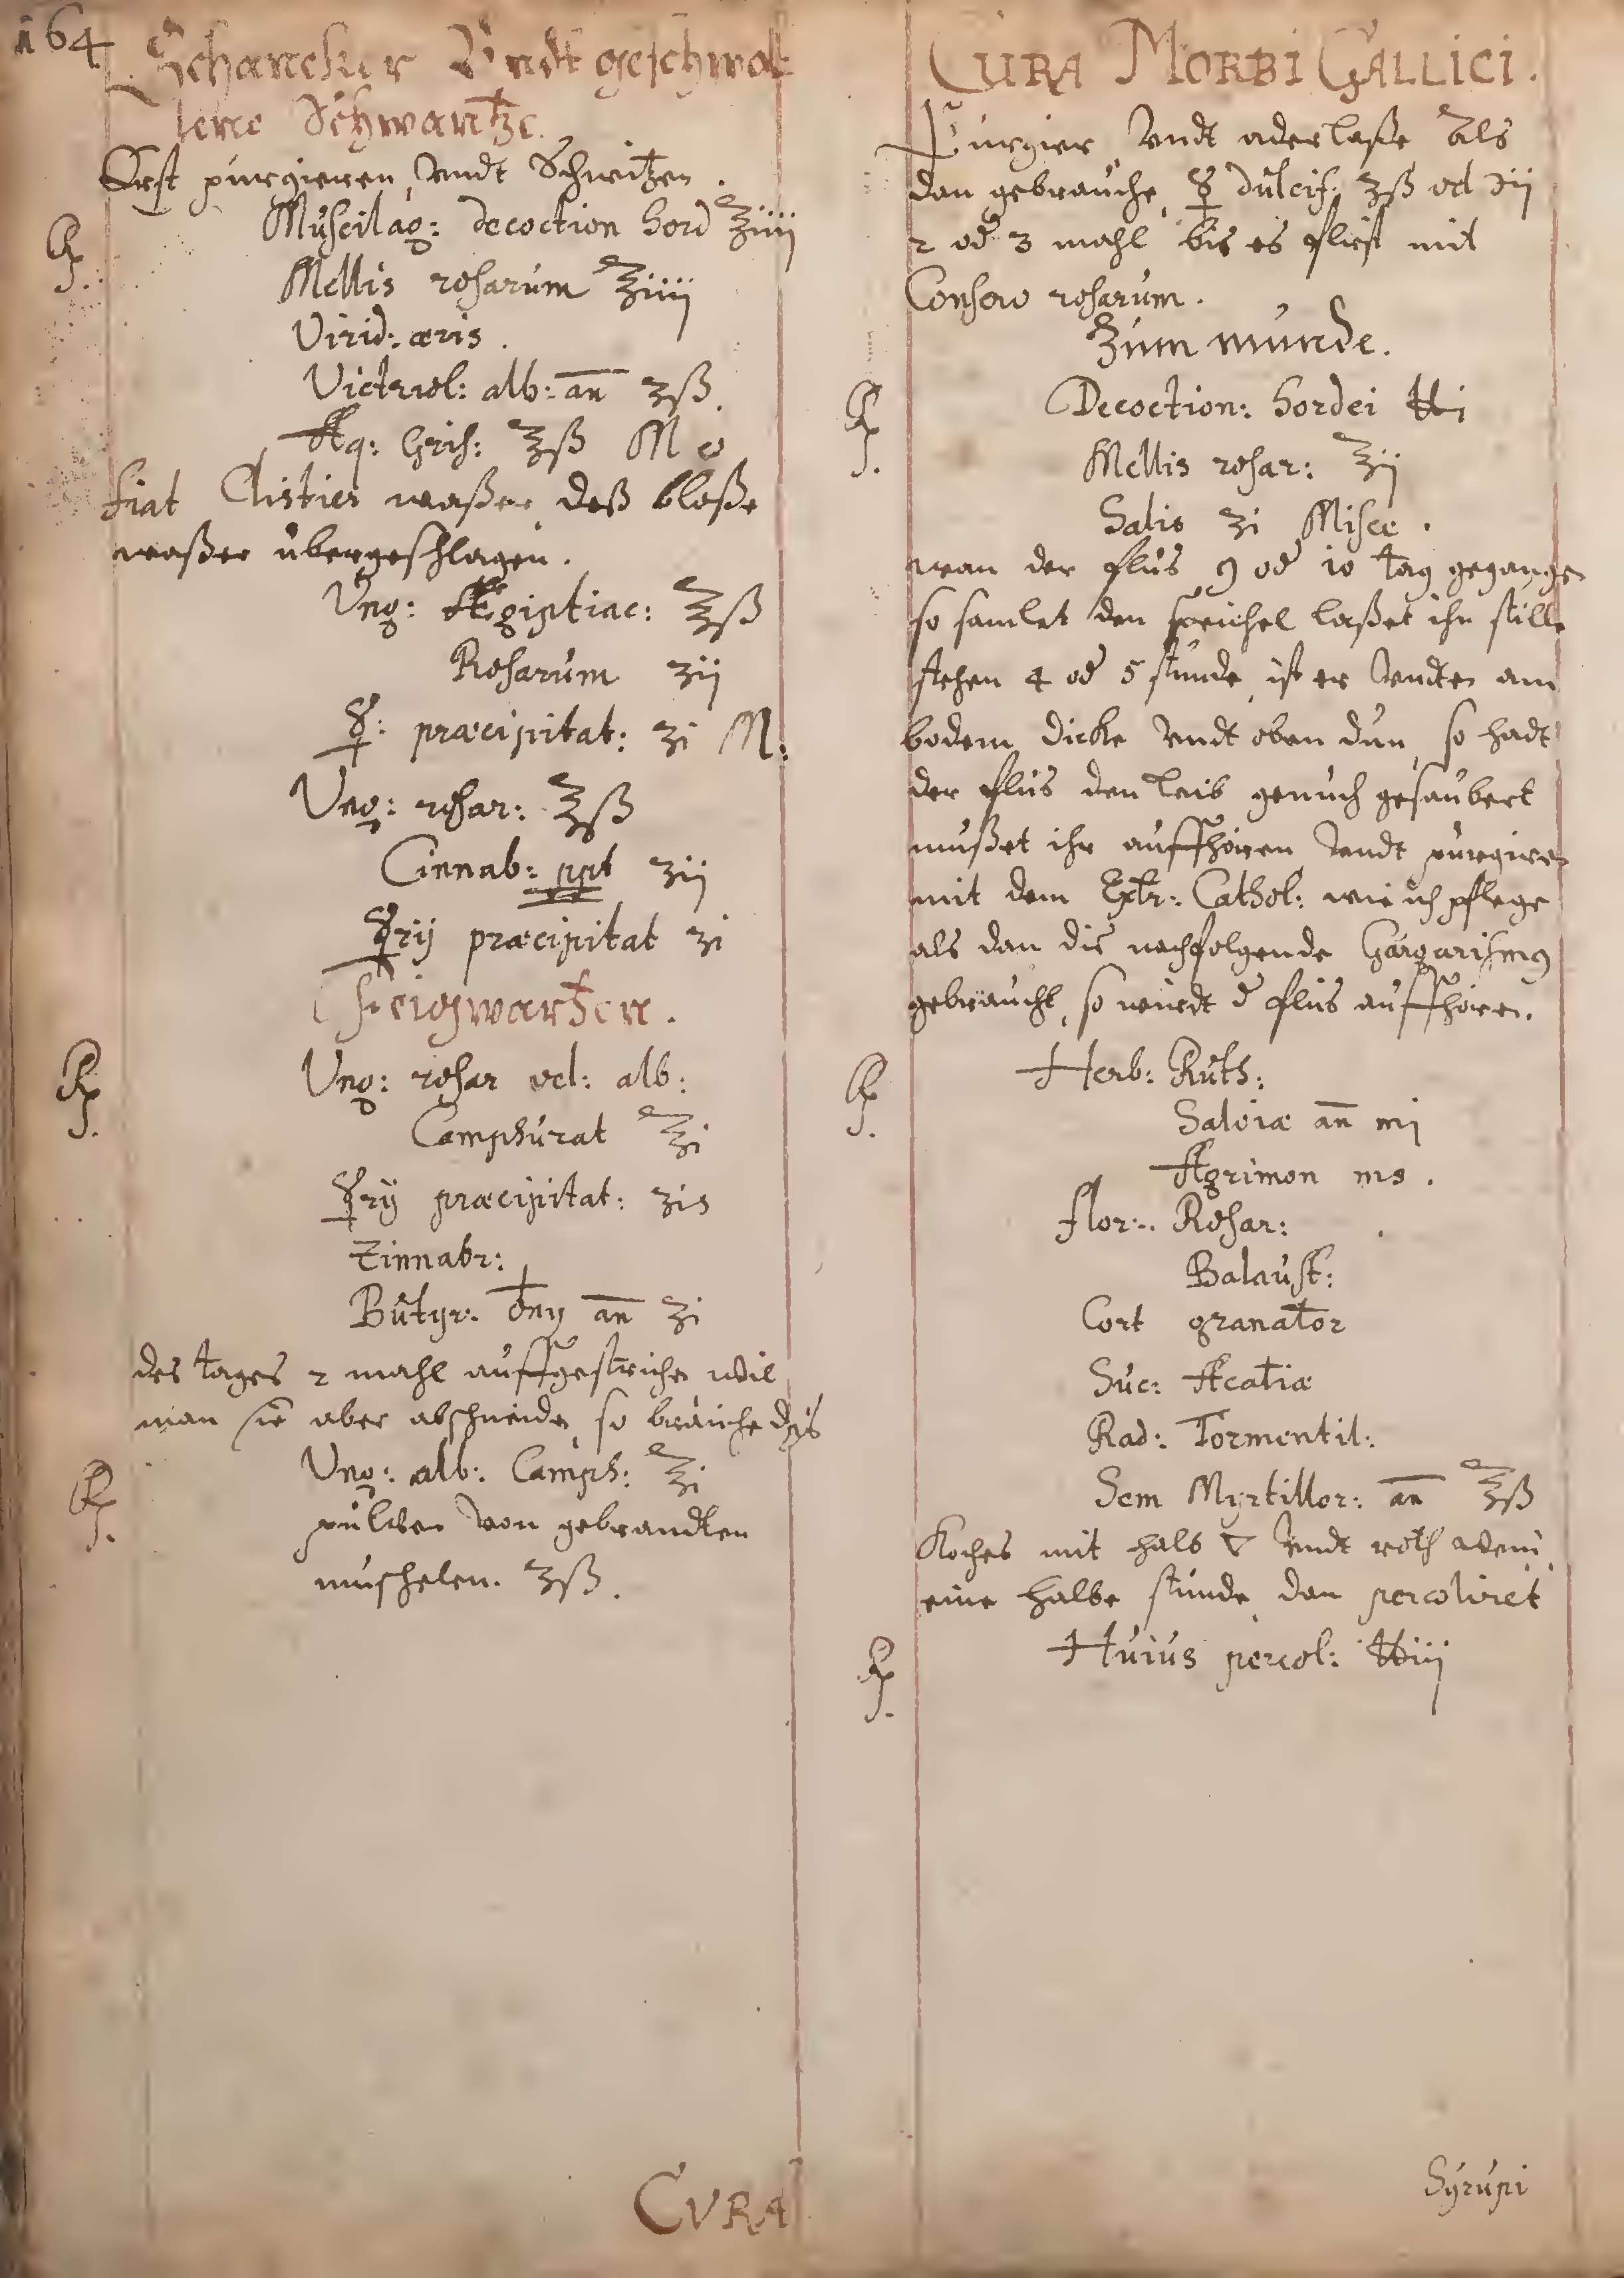 164
Schanckur Undt geschwol
lene Schwantze.
Erst purgieren, Undt Schwitzen.
℞. Muscilag: decoction hord ℥iiij
Mellis rosarum ℥iiij
Virid: æris.
Victriol: alb: an̄ ʒß.
Aq: Gris: ℥ß M
fiat Clistier waßer, deß bloße
waßer übergeschlagen.
Ung: Ægiptiac: ℥ß
Rosarum ʒij
☿: præcipitat: ʒi M:
Ung: rosar: ℥ß
Cinnab: ppt ʒij
☿rij præcipitat ʒi
Feigwartzen.
℞. Ung: rosar vel: alb:
Camphurat ℥i
☿rij præcipitat: ʒis
Zinnabr:
Butyr: ♁nij an̄ ʒi
des tages 2 mahl auffgestriche wil
man sie aber abschneide, so brauche dis
℞. Ung: alb: Camph: ℥i
pulver von gebrandten
muschelen. ʒß.
CVRA
CURA MORBI GALLICI.
Purgier Undt aderlaße Als
dan gebrauche, ☿ dulcis: ʒß vel ℈ij
2 od 3 mahl bis es fliest mit
Conserv rosarum.
Zum munde.
℞. Decoction: hordei ℔i
Mellis rosar: ℥ij
Salis ʒi Misce.
wan der flus 9 od 10 tag gegange
so samlet den speichel laßet ihn stille
stehen 4 od 5 stunde, ist er Undten am
bodem dicke Undt oben dun, so hadt
der flus den leib genuch gesaubert
mußet ihr auffhören Undt purgire
mit dem Extr: Cathol: wie ich pflege
als dan die nachfolgende Gargarismus
gebraucht, so wurdt d flus auffhören.
℞. Herb: Ruth:
Salviæ an̄ mj
Agrimon ms.
flor: Rosar:
Balaust:
Cort granator
Suc: Acatiæ
Rad: Tormentil:
Sem Myrtillor: an̄ ℥ß
Koches mit halb ▽ Undt roth wein,
eine halbe stunde, dan percoliret
℞. Huius percol: ℔iij
Syrupi